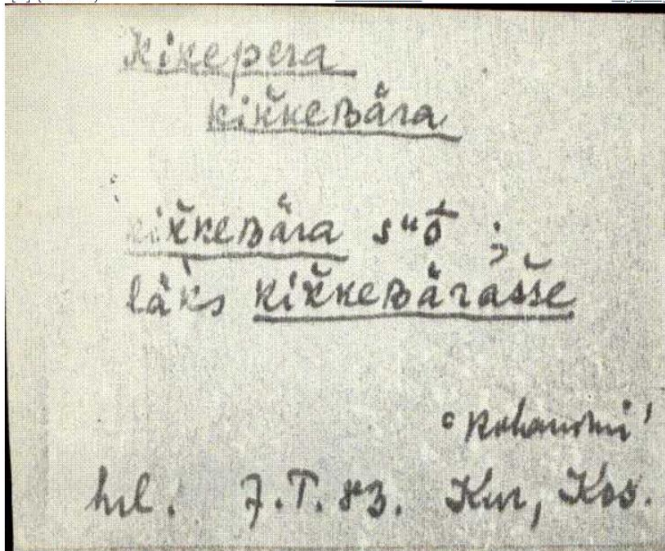 Kikepera
kik̆keʙära
kik̆keʙära sᵘō̭ ;
läks kik̆keʙäras̆se
hrl. J.T. 83. Kur, Kos.